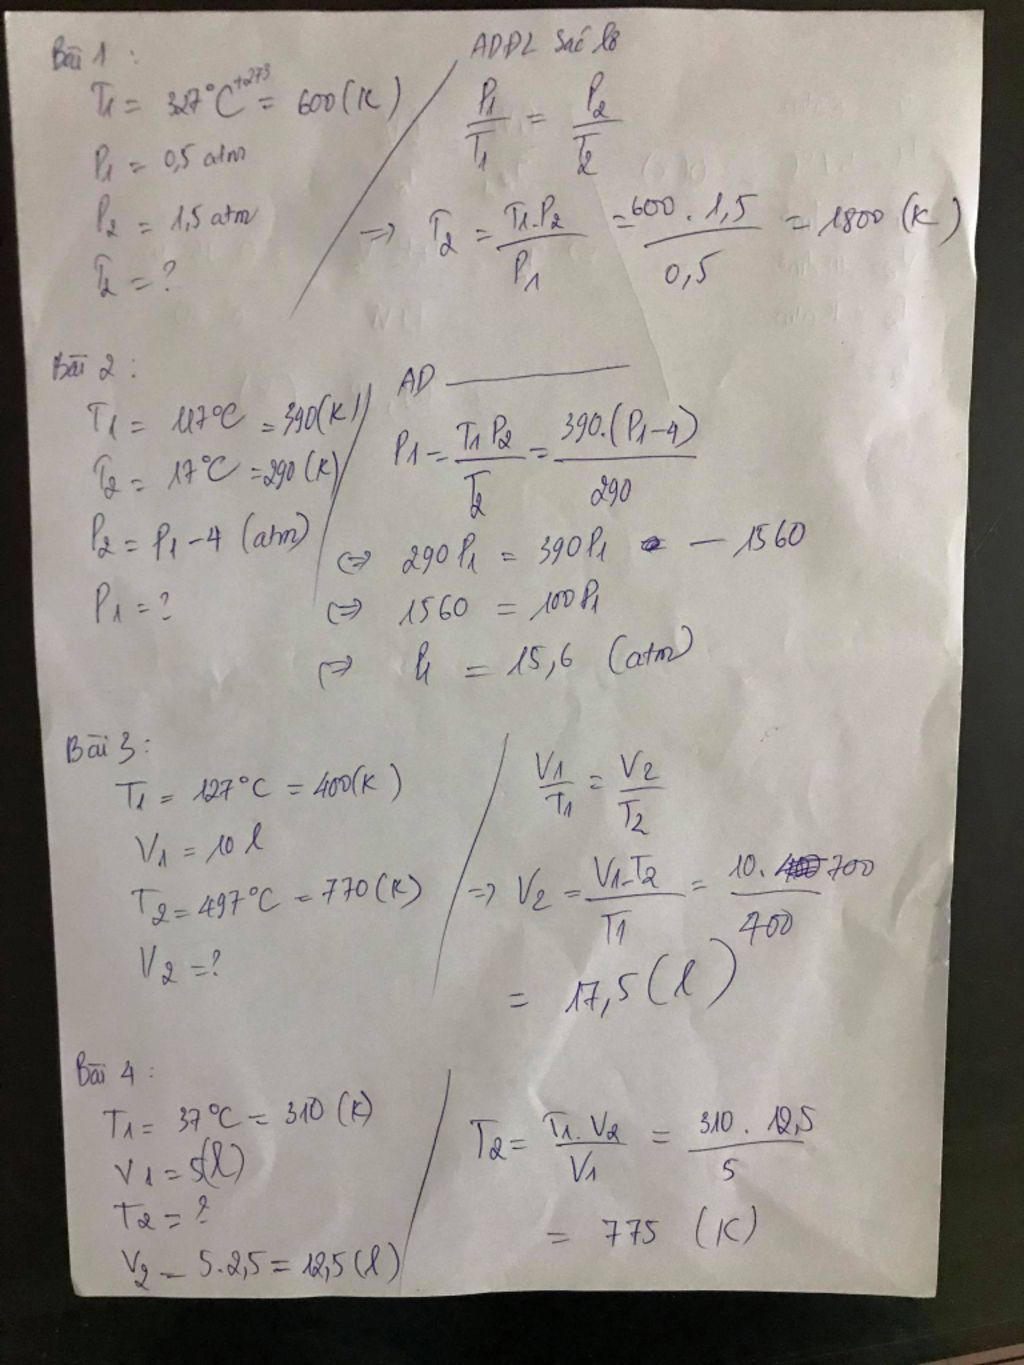 Bài 1 :
T1 = 327°C +273 = 600 (K)
P1 = 0,5 atm
P2 = 1,5 atm
T2 = ?
ADĐL Sác lơ
P1/T1 = P2/T2
=> T2 = T1.P2/P1 = 600 . 1,5/0,5 = 1800 (K)
Bài 2 :
T1 = 117°C = 390(K)
T2 = 17°C = 290 (K)
P2 = P1 - 4 (atm)
P1 = ?
AD
P1 = T1 P2/T2 = 390.(P1-4)/290
<=> 290 P1 = 390P1 - 1560
<=> 1560 = 100P1
<=> P1 = 15,6 (atm)
Bài 3 :
T1 = 127°C = 400(K)
V1 = 10 l
T2 = 497°C = 770 (K)
V2 = ?
V1/T1 = V2/T2
=> V2 = V1.T2/T1 = 10. 700/400
= 17,5 (l)
Bài 4 :
T1 = 37°C = 310 (K)
V1 = 5(l)
T2 = ?
V2 = 5.2,5 = 12,5 (l)
T2 = T1. V2/V1 = 310 . 12,5/5
= 775 (K)